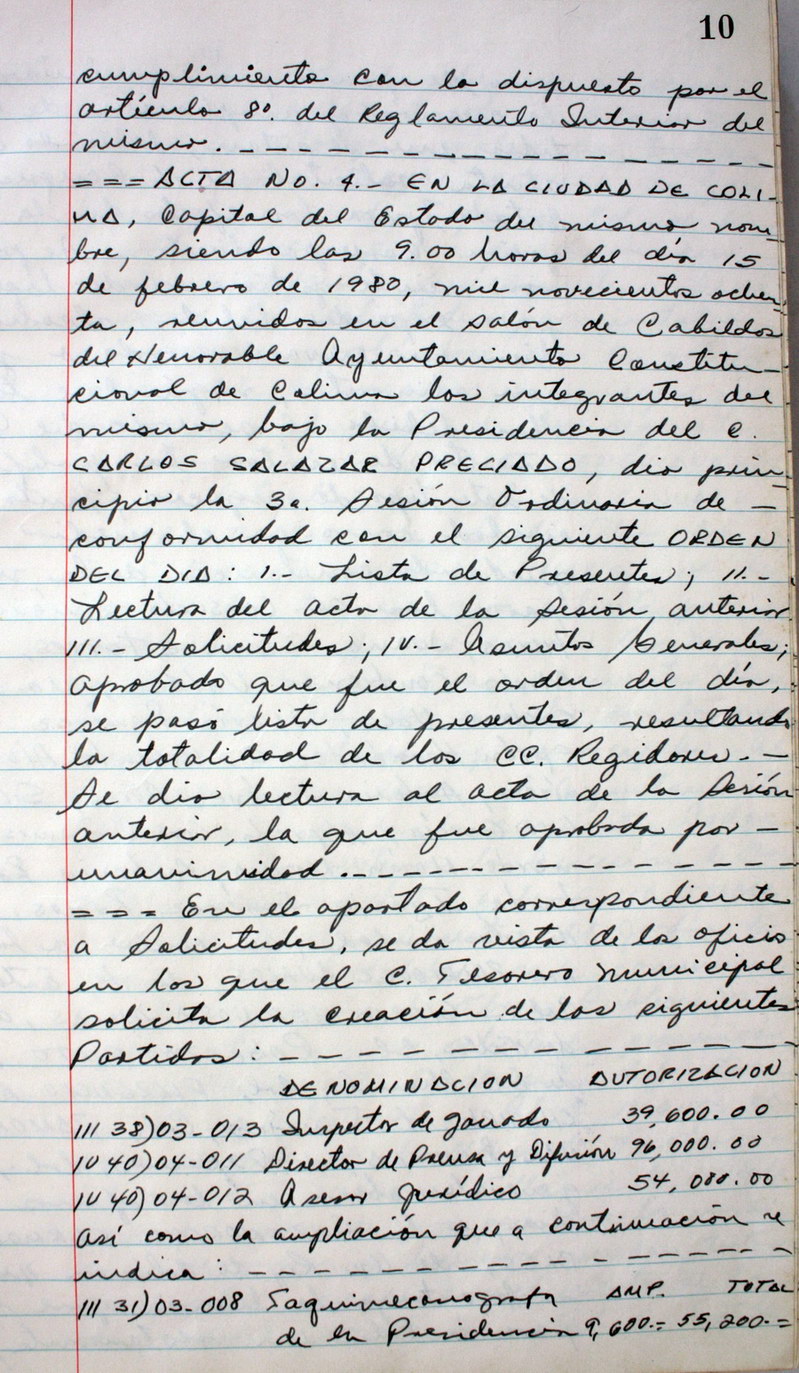 10
cumplimiento con lo dispuesto por el
artículo 8º. del Reglamento Interior del
mismo. - - - - - - - - - - - - - - - -
= = = ACTA NO. 4.- EN LA CIUDAD DE COLI-
MA, Capital del Estado del mismo nom-
bre, siendo las 9.00 horas del día 15
de febrero de 1980, mil novecientos ochen-
ta, reunidos en el salón de Cabildos
del Honorable Ayuntamiento Constitu-
cional de Colima los integrantes del
mismo, bajo la Presidencia del C.
CARLOS SALAZAR PRECIADO, dio prin-
cipio la 3a. Sesión Ordinaria de -
conformidad con el siguiente ORDEN
DEL DIA: 1.- Lista de Presentes; 11.-
Lectura del acta de la Sesión anterior
111.- Solicitudes; IV.- Asuntos Generales;
aprobado que fue el orden del día,
se pasó lista de presentes, resultando
la totalidad de los CC. Regidores. -
Se dio lectura al acta de la Sesión
anterior, la que fue aprobada por -
unanimidad. - - - - - - - - - - - - -
= = = En el apartado correspondiente
a Solicitudes, se da vista de los oficio
en los que el C. Tesorero Municipal
solicita la creación de las siguientes
Partidas: - - - - - - - - - - - - -
DENOMINACION AUTORIZACION
III 38)03-013 Inspector de ganado 39,600.00
IV 40)04-011 Director de Prensa y Difusión 96,000.00
IV 40)04-012 Asesor Jurídico 54,000.00
así como la ampliación que a continuación se
indica: - - - - - - - - - - - - -
III 31)03-008 Taquimecanografa AMP. TOTAL
de la Presidencia 9,600.= 55,200.=